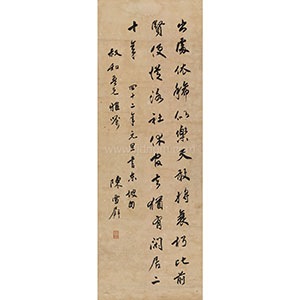 出處依稀似樂天敢將衰朽比前
賢便從洛社休官去猶有閒居二
十年 四十二年元旦書東坡句
叔和吾兄雅鑒 陳雪屏